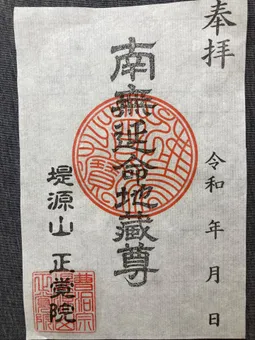 奉拝
令和 年 月 日
南無延命地蔵尊
堤源山 正覚院